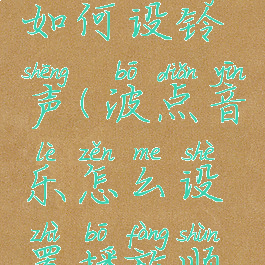 如何设铃
shēng bō diǎn yīn
声(波点音
lè zěn me shè
乐怎么设
zhì bō fàng shùn
置播放顺